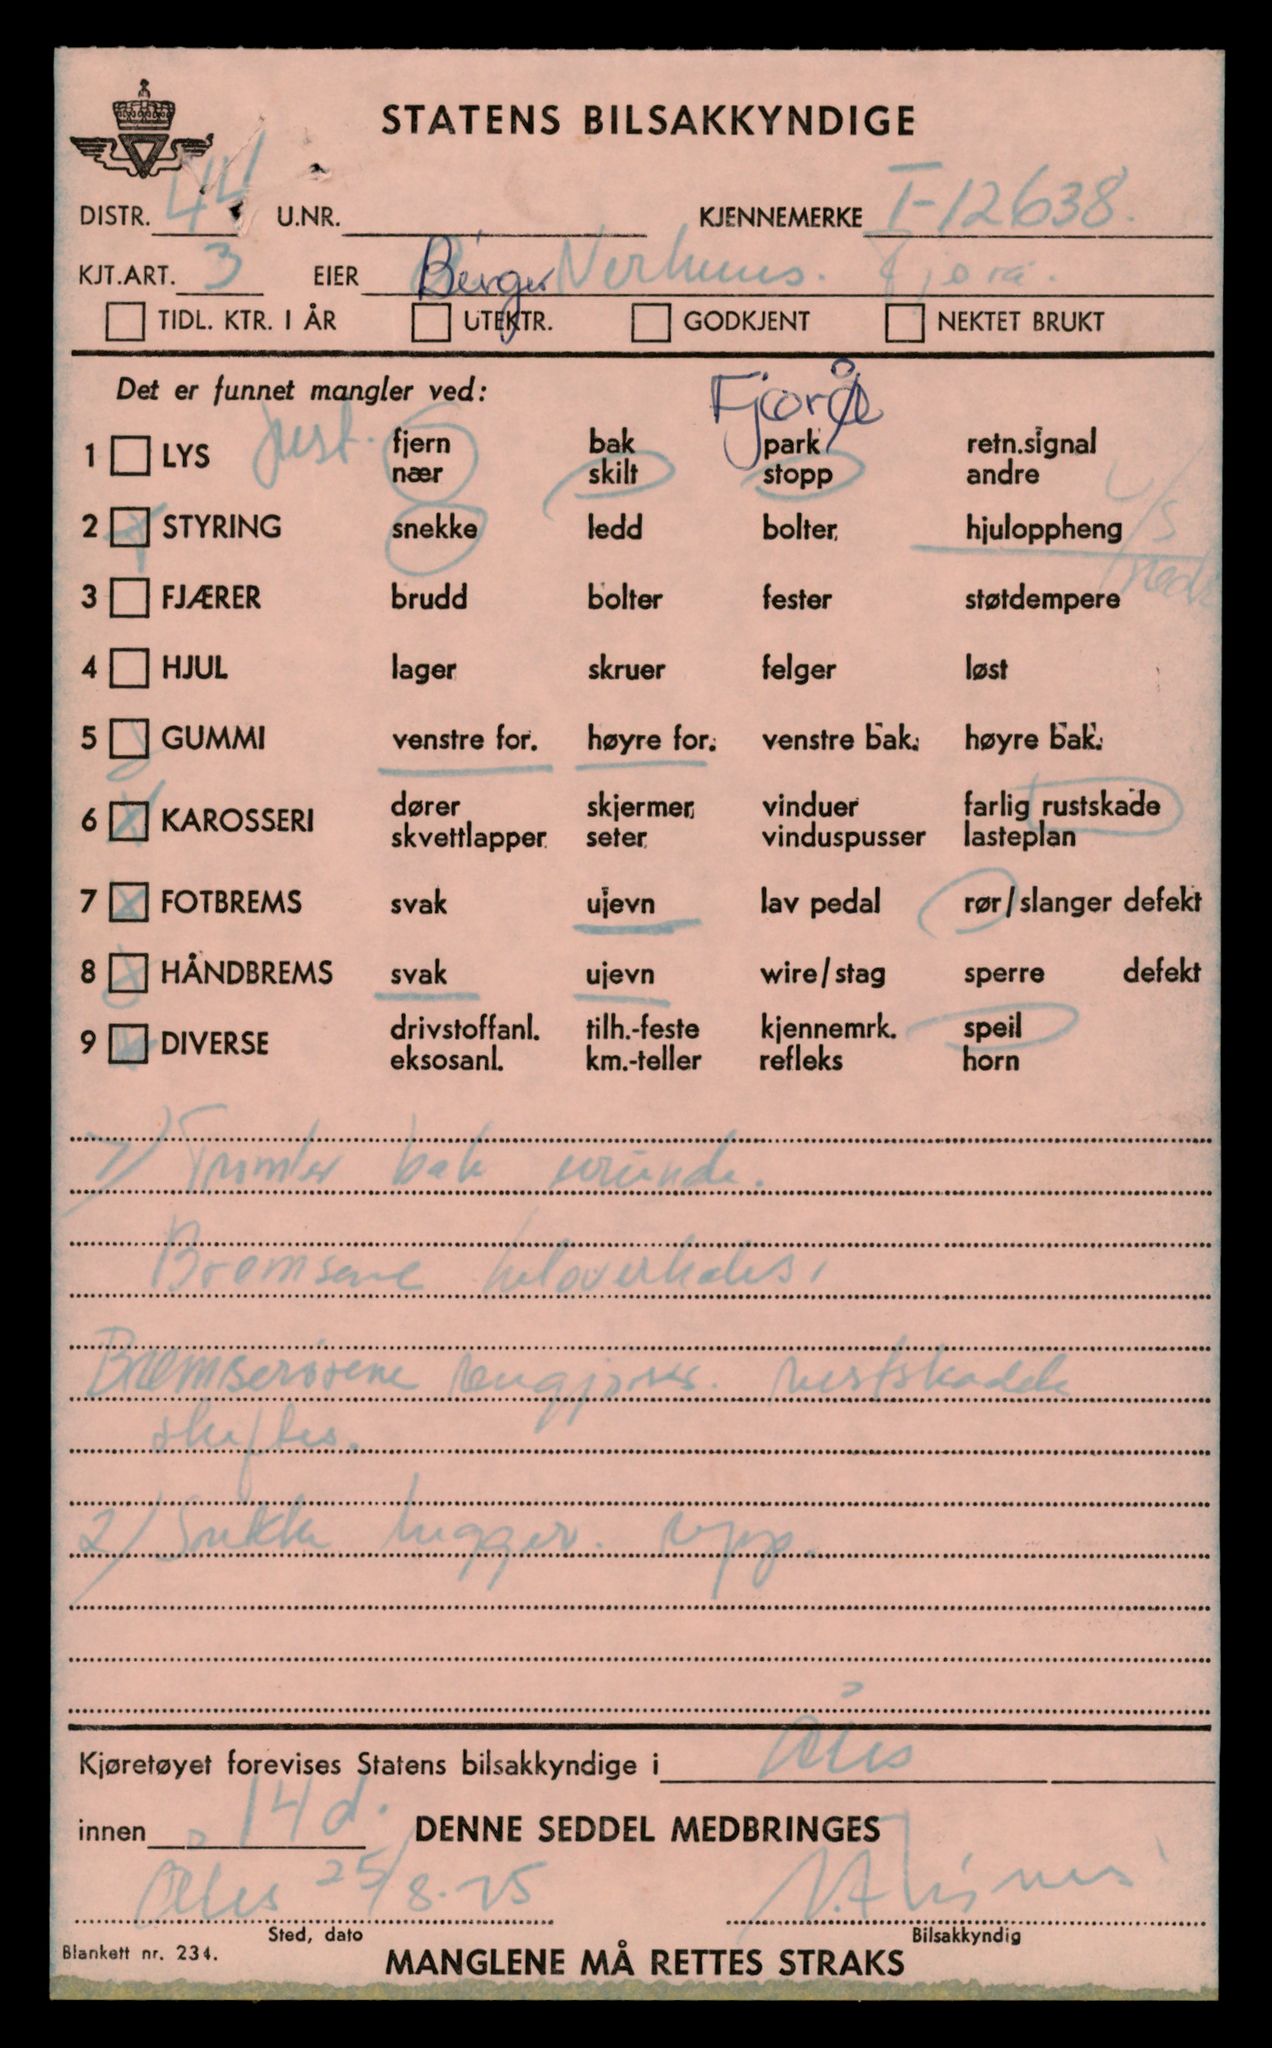 STATENS BILSAKKYNDIGE
DISTR. 44 U.NR. KJENNEMERKE T-12638.
KJT.ART. 3 EIER Berger Nerhuus. Fjøra.
TIDL. KTR. I ÅR UTEKTR. GODKJENT NEKTET BRUKT
Det er funnet mangler ved: Fjorå
1 LYS just. fjern bak park retn.signal
nær skilt stopp andre
2 STYRING snekke ledd bolter hjuloppheng
3 FJÆRER brudd bolter fester støtdempere
4 HJUL lager skruer felger løst
5 GUMMI venstre for. høyre for. venstre bak. høyre bak.
6 KAROSSERI dører skjermer vinduer farlig rustskade
skvettlapper seter vinduspusser lasteplan
7 FOTBREMS svak ujevn lav pedal rør/slanger defekt
8 HÅNDBREMS svak ujevn wire/stag sperre defekt
9 DIVERSE drivstoffanl. tilh.-feste kjennemrk. speil
eksosanl. km.-teller refleks horn
7/ Tromler bak urunde.
Bremsene heloverhales.
Bremserørene rengjøres. rustskadde
skiftes.
2/ Snekke hugger. opp.
Kjøretøyet forevises Statens bilsakkyndige i Åles
innen 14 d. DENNE SEDDEL MEDBRINGES
Åles 25/8-75
Sted, dato Bilsakkyndig
Blankett nr. 234. MANGLENE MÅ RETTES STRAKS